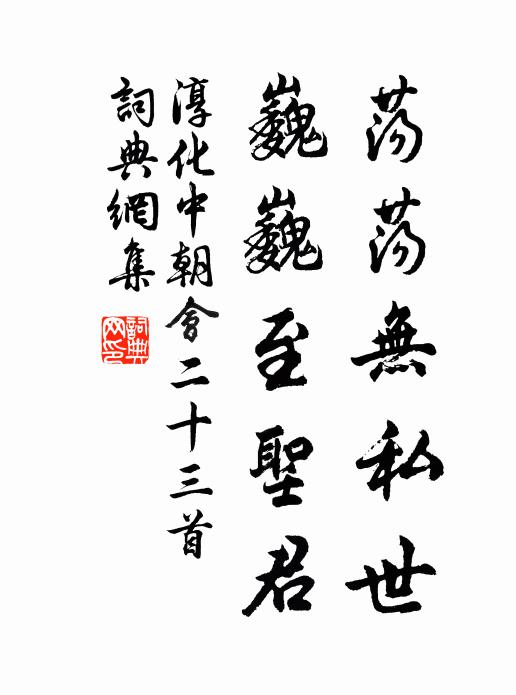 蕩蕩無私世
巍巍至聖君
淳化中朝會二十三首
詞典網集
詞典網印